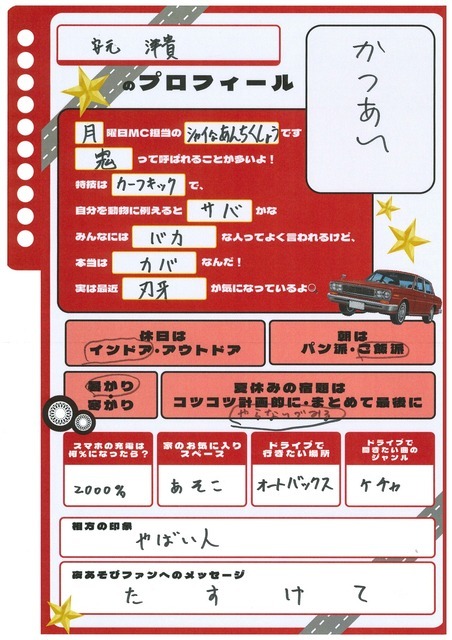 安元 洋貴
のプロフィール
かつあい
月 曜日MC担当の シャイなあんちくしょう です
鬼 って呼ばれることが多いよ!
特技は カーフキック で、
自分を動物に例えると サバ かな
みんなには バカ な人ってよく言われるけど、
本当は カバ なんだ!
実は最近 刃牙 が気になっているよ○
休日は
インドア・アウトドア
朝は
パン派・ご飯派
暑がり
・
寒がり
夏休みの宿題は
コツコツ計画的に・まとめて最後に
やらないでみる
スマホの充電は
何%になったら?
2000%
家のお気に入り
スペース
あそこ
ドライブで
行きたい場所
オートバックス
ドライブで
聞きたい曲の
ジャンル
ケチャ
相方の印象
やばい人
夜あそびファンへのメッセージ
たすけて